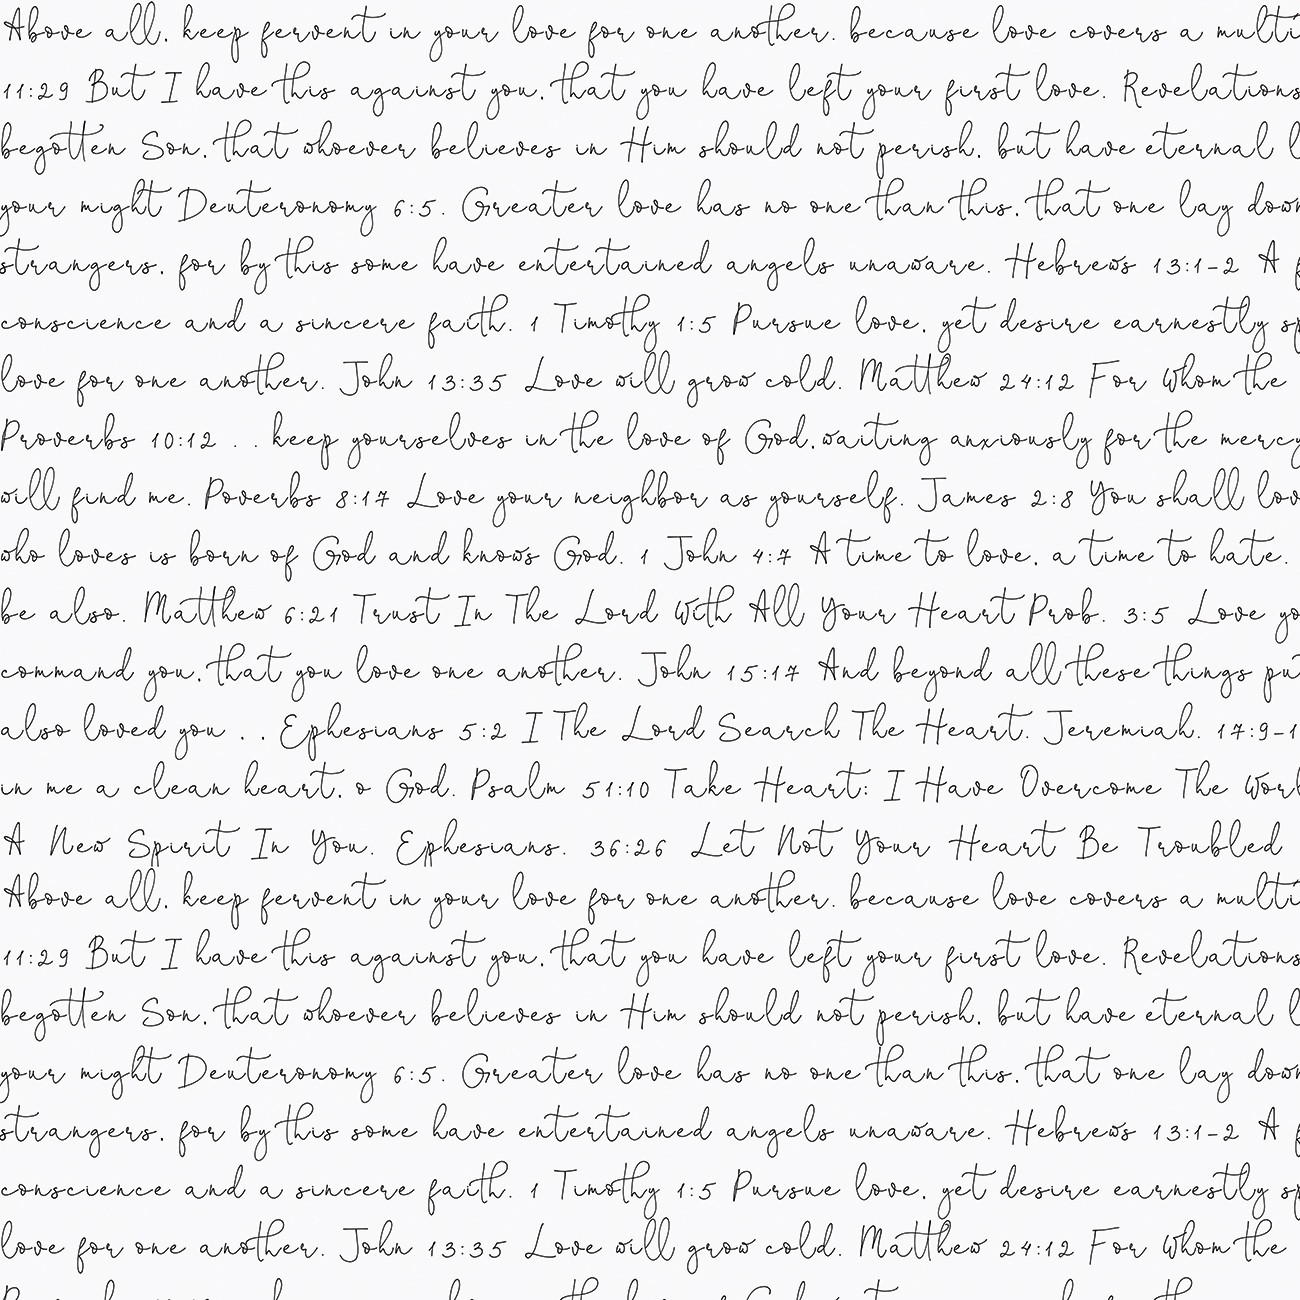 Above all, keep fervent in your love for one another, because love covers a multi
11:29 But I have this against you, that you have left your first love. Revelations
begotten Son, that whoever believes in Him should not perish, but have eternal l
your might Deuteronomy 6:5. Greater love has no one than this, that one lay down
strangers, for by this some have entertained angels unaware. Hebrews 13:1-2 A f
conscience and a sincere faith. 1 Timothy 1:5 Pursue love, yet desire earnestly sp
love for one another. John 13:35 Love will grow cold. Matthew 24:12 For Whom the
Proverbs 10:12 . . keep yourselves in the love of God, waiting anxiously for the mercy
will find me. Poverbs 8:17 Love your neighbor as yourself. James 2:8 You shall lov
who loves is born of God and knows God. 1 John 4:7 A time to love, a time to hate.
be also. Matthew 6:21 Trust In The Lord With All Your Heart Prob. 3:5 Love yo
command you, that you love one another. John 15:17 And beyond all these things pu
also loved you . . Ephesians 5:2 I The Lord Search The Heart. Jeremiah. 17:9-1
in me a clean heart, o God. Psalm 51:10 Take Heart: I Have Overcome The Worl
A New Spirit In You. Ephesians. 36:26 Let Not Your Heart Be Troubled
Above all, keep fervent in your love for one another, because love covers a multi
11:29 But I have this against you, that you have left your first love. Revelations
begotten Son, that whoever believes in Him should not perish, but have eternal l
your might Deuteronomy 6:5. Greater love has no one than this, that one lay down
strangers, for by this some have entertained angels unaware. Hebrews 13:1-2 A f
conscience and a sincere faith. 1 Timothy 1:5 Pursue love, yet desire earnestly sp
love for one another. John 13:35 Love will grow cold. Matthew 24:12 For Whom the